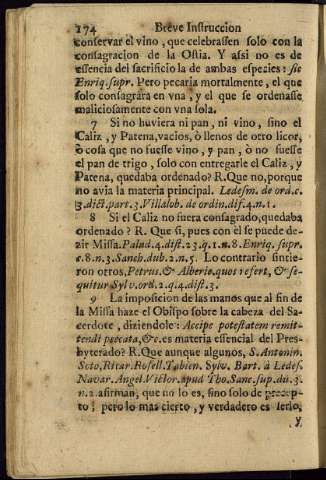 174 Breve Instruccion
conservar el vino, que celebrassen solo con la
consagracion de la Ostia. Y assi no es de
essencia del sacrificio la de ambas especies: sic
Enriq. supr. Pero pecaria mortalmente, el que
solo consagrára en vna, y el que se ordenasse
maliciosamente con vna sola.
7 Si no huviera ni pan, ni vino, sino el
Caliz, y Patena, vacios, ò llenos de otro licor,
ò cosa que no fuesse vino, y pan, ò no fuesse
el pan de trigo, solo con entregarle el Caliz, y
Patena, quedaba ordenado? R. Que no, porque
no avia la materia principal. Ledesm. de ord. c.
3. dict. part. 3. Villalob. de ordin. dif. 4. n. 1.
8 Si el Caliz no fuera consagrado, quedaba
ordenado? R. Que si, pues con èl se puede de-
zir Missa. Palud. 4. dist. 23. q. 1. n. 8. Enriq. supr.
c. 8. n. 3. Sanch. dub. 2. n. 5. Lo contrario sintie-
ron otros, Petrus, & Alberic. quos refert, & se-
quitur Sylv. ord. 2. q. 4. dist. 3.
9 La imposicion de las manos que al fin de
la Missa haze el Obispo sobre la cabeza del Sa-
cerdote, diziendole: Accipe potestatem remit-
tendi peccata, &c. es materia essencial del Pres-
byterado? R. Que aunque algunos, S. Antonin.
Scto, Ricar. Rosell. Tabien. Sylv. Bart. à Ledes.
Navar. Angel. Victor. apud Tho. Sanc. sup. du. 3.
n. 2. afirman, que no lo es, sino solo de precep-
to; pero lo mas cierto, y verdadero es serlo,
y